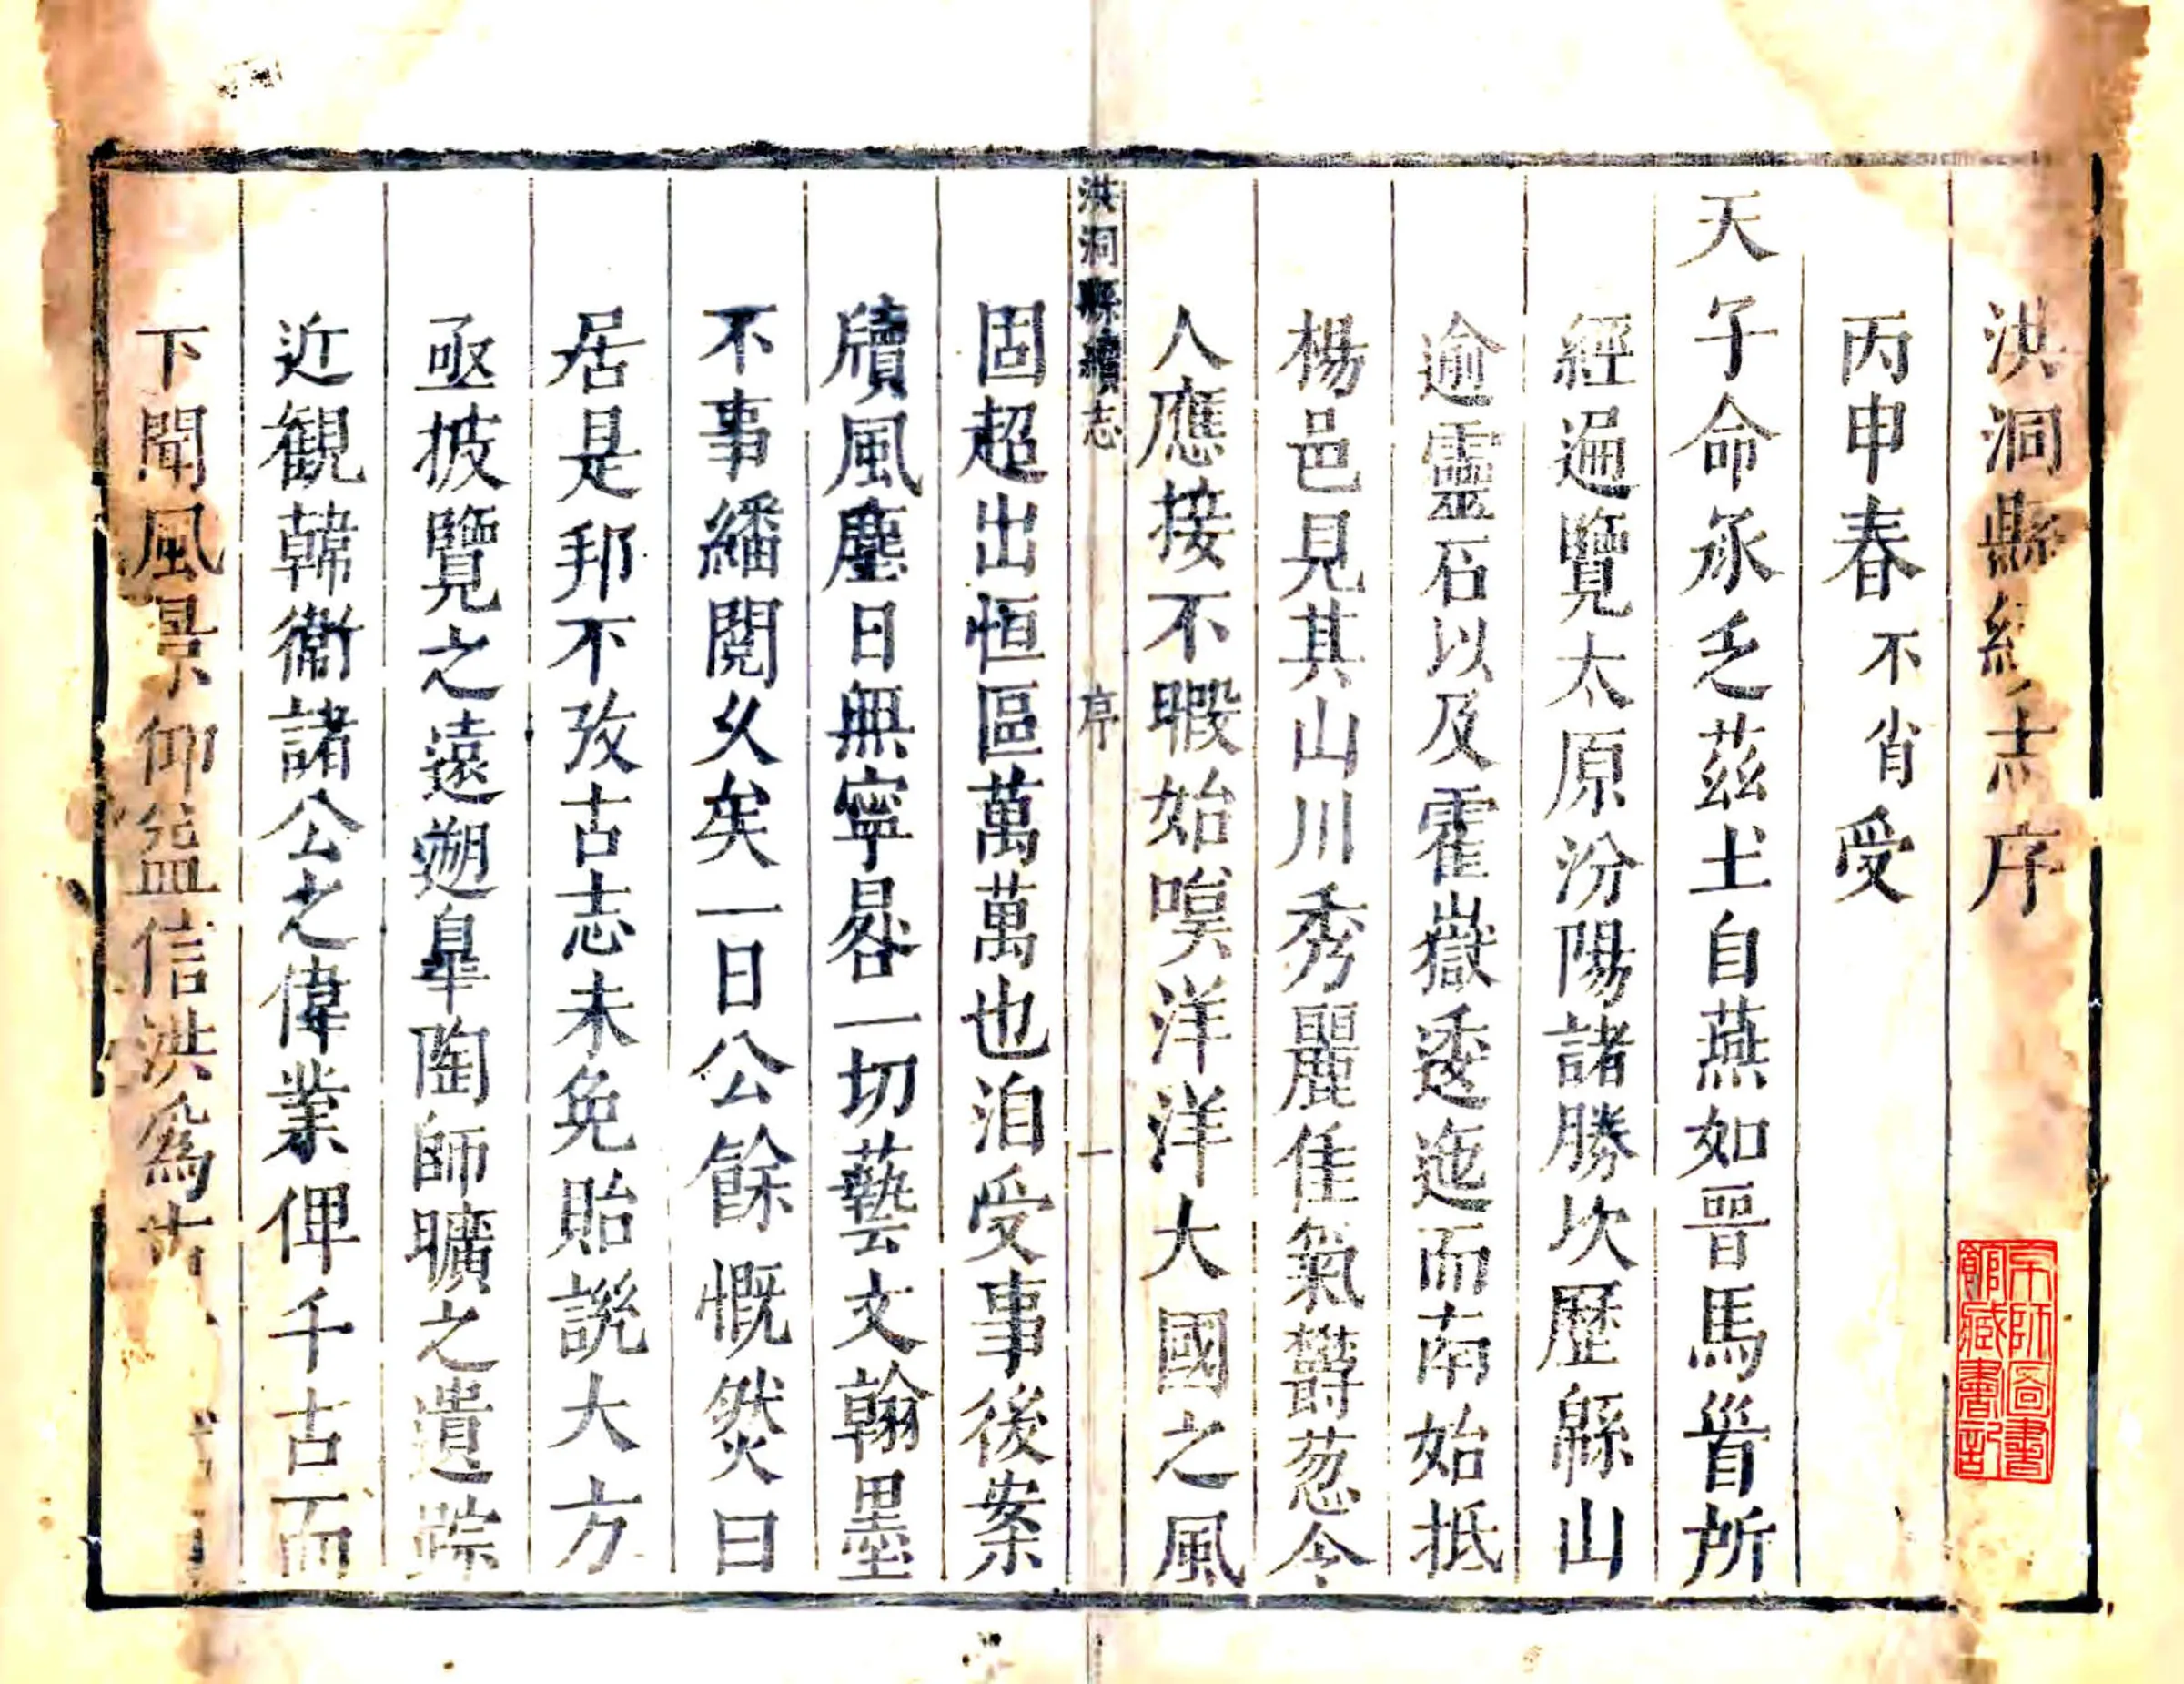 洪洞縣續志序
丙申春不肖受
天子命承乏茲土自燕如晉馬首所
經遍覽太原汾陽諸勝坎歷緜山
逾靈石以及霍嶽逶迤而南始抵
楊邑見其山川秀麗佳氣欝葱令
人應接不暇始嘆洋洋大國之風
洪洞縣續志 序 一
固超出恒區萬萬也洎受事後案
牘風塵日無寧晷一切藝文翰墨
不事繙閱久矣一日公餘慨然曰
居是邦不攷古志未免貽誚大方
亟披覽之遠遡皐陶師曠之遺踪
近觀韓衞諸公之偉業俾千古而
下聞風景仰益信洪爲古
京師圖書
館藏書記